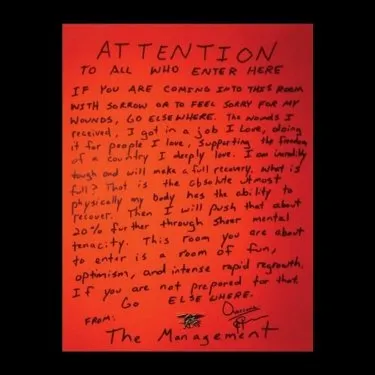 ATTENTION
TO ALL WHO ENTER HERE
IF YOU ARE COMING INTO THIS ROOM
WITH SORROW OR TO FEEL SORRY FOR MY
WOUNDS, GO ELSEWHERE. The wounds I
received, I got in a job I love, doing
it for people I love, supporting the freedom
of a country I deeply love. I am incredibly
tough and will make a full recovery. What is
full? That is the absolute utmost
physically my body has the ability to
recover. Then I will push that about
20% further through sheer mental
tenacity. This room you are about
to enter is a room of fun,
optimism, and intense rapid regrowth.
If you are not prepared for that,
Go ELSEWHERE.
FROM:
The Management